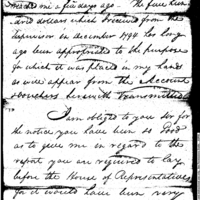 me a few days ago. The five hun
dred dollars which I received from the
Supervisor in december 1794 has long
ago been appropriated to the purpose
for which it was placed in my hands
as will appear from the Account
& vouchers herewith transmitted
I am obliged to you Sir for
the notice you have been so good
as to give me in regard to the
report you are required to lay
before the House of Representatives
for it would have been very